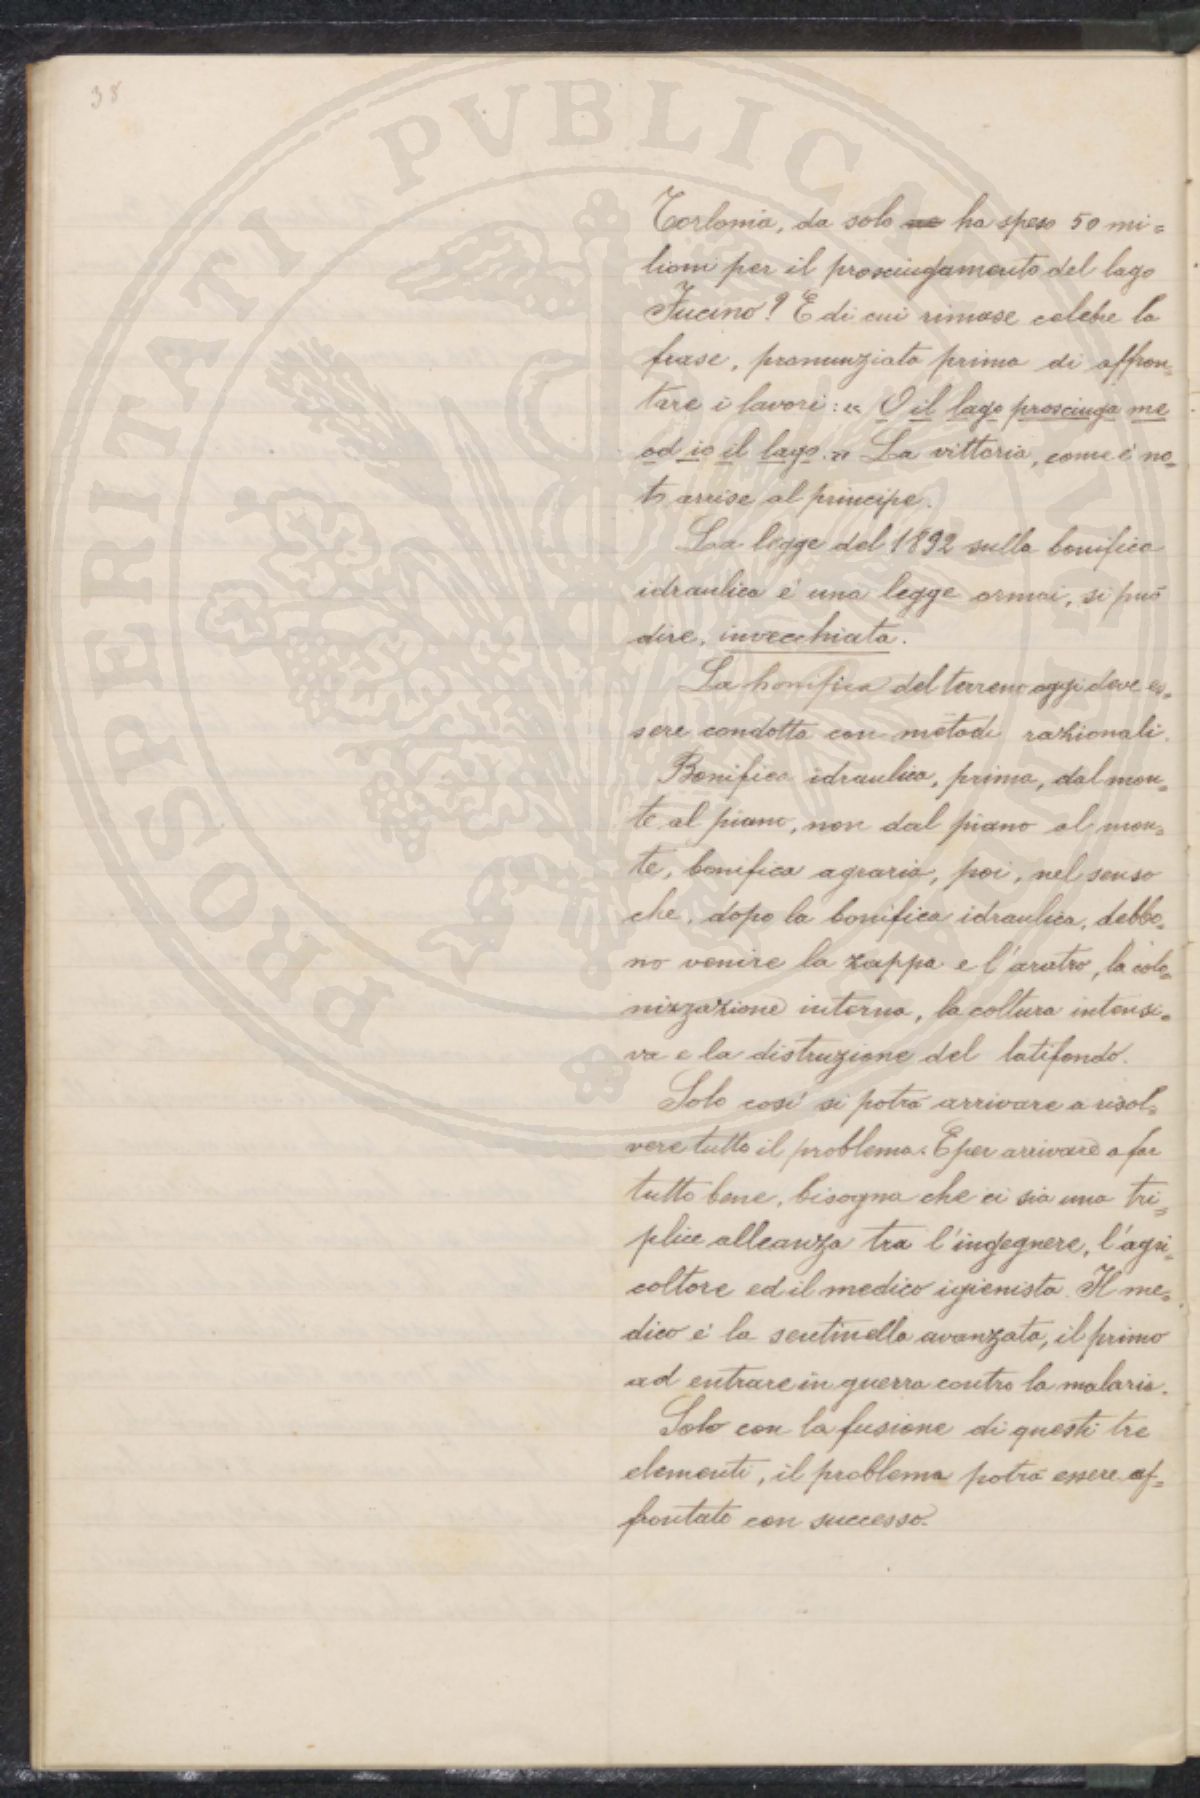 38
Torlonia, da solo ne ha speso 50 mi=
lioni per il prosciugamento del lago
Fucino? E di cui rimase celebre la
frase, pronunziata prima di affron=
tare i lavori: « O il lago prosciuga me
od io il lago.» La vittoria, come è no=
to arrise al principe.
La legge del 1892 sulla bonifica
idraulica é una legge ormai, si può
dire, invecchiata.
La bonifica del terreno oggi deve es=
sere condotta con metodi razionali.
Bonifica idraulica, prima, dal mon=
te al piano, non dal piano al mon=
te, bonifica agraria, poi, nel senso
che, dopo la bonifica idraulica, debbo=
no venire la zappa e l'aratro, la colo=
nizzazione interna, la coltura intensi=
va e la distruzione del latifondo.
Solo così si potrà arrivare a risol=
vere tutto il problema. E per arrivare a far
tutto bene, bisogna che ci sia una tri=
plice alleanza tra l'ingegnere, l'agri=
coltore ed il medico igienista. Il me=
dico é la sentinella avanzata, il primo
ad entrare in guerra contro la malaria.
Solo con la fusione di questi tre
elementi, il problema potrà essere af=
frontato con successo.
PROSPERITATI PUBLICAE